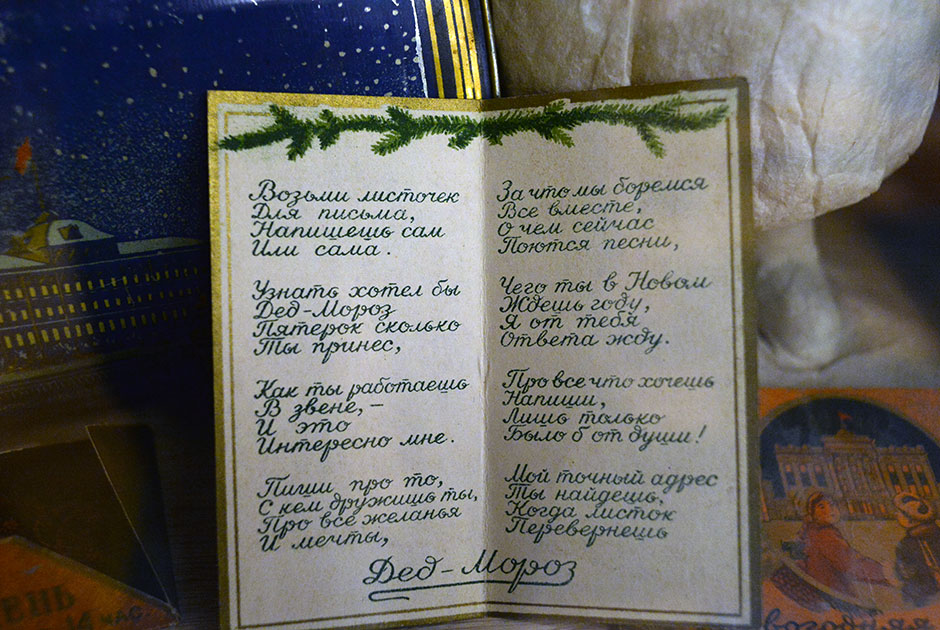 Возьми листочек
Для письма,
Напишешь сам
Или сама.
Узнать хотел бы
Дед-Мороз
Пятерок сколько
Ты принес,
Как ты работаешь
В звене, –
И это
Интересно мне.
Пиши про то,
С кем дружишь ты,
Про все желанья
И мечты,
За что мы боремся
Все вместе,
О чем сейчас
Поются песни,
Чего ты в Новом
Ждешь году,
Я от тебя
Ответа жду.
Про все что хочешь
Напиши,
Лишь только
Было б от души!
Мой точный адрес
Ты найдешь,
Когда листок
Перевернешь
Дед-Мороз